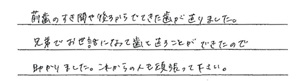 前歯のすき間や後ろからでてきた歯が治りました。
兄弟でお世話になって歯と治ることができたので
助かりました。これからの人も頑張って下さい。